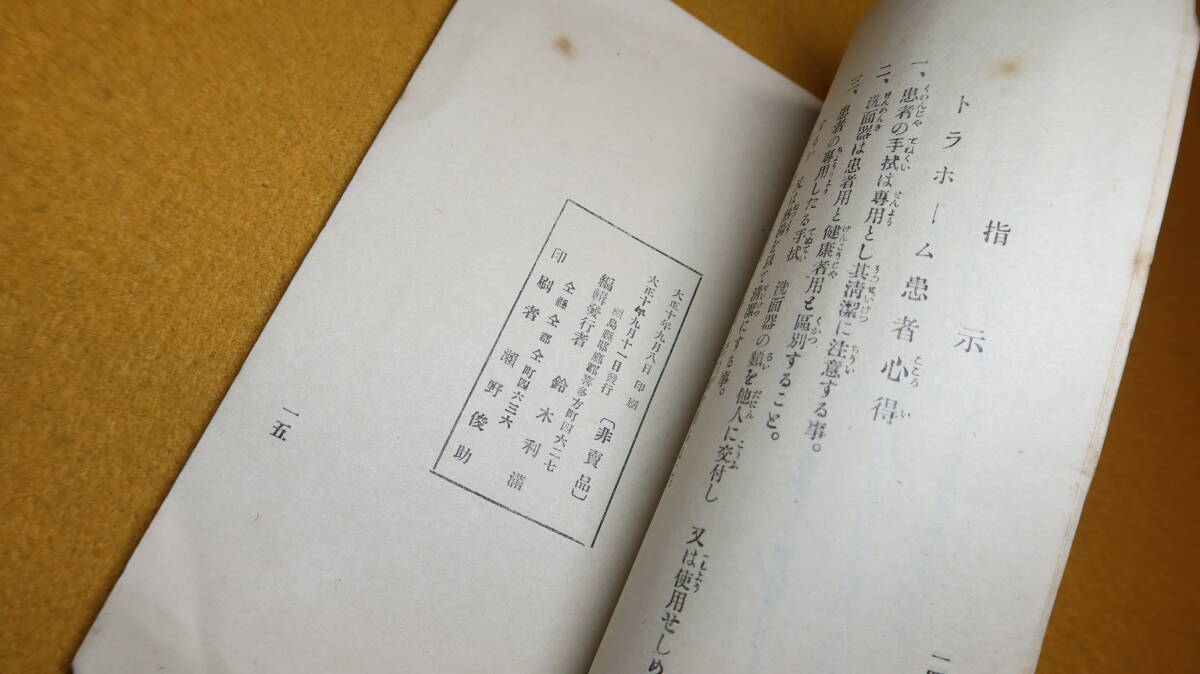 指示
トラホーム患者心得
一、患者の手拭は専用とし其清潔に注意する事。
二、洗面器は患者用と健康者用と區別すること。
三、患者の専用したる手拭 洗面器の類を他人に交付し 又は使用せしめ
を以て清潔にする事。
大正十年九月八日 印刷
大正十年九月十一日發行 〔非賣品〕
福島縣耶麻郡喜多方町四六二七
編輯發行者 鈴木利満
仝縣仝郡仝町四六三六
印刷者 瀬野俊助
一五